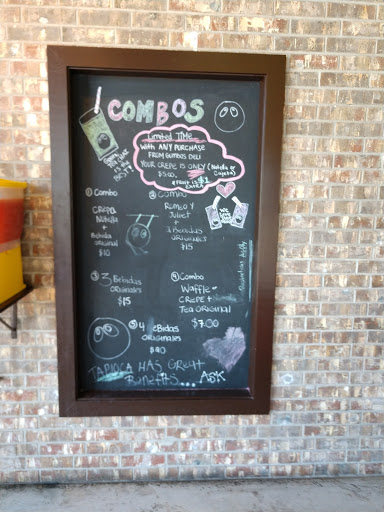 COMBOS
Limited Time
With ANY PURCHASE
FROM GUMBOS DELI
YOUR CREPE IS ONLY (Nutella or
$5.00, Cajeta)
*FRUIT IS $1
EXTRA
① Combo
CREPA
Nutella
+
Bebida
original
$10
② Combo
ROMEO Y
Juliet
+
2 Bebidas
ORIGINALES
$15
③ 3 Bebidas
ORIGINALES
$15
④ Combo
Waffle-
CREPE +
TEA ORIGINAL
$7.00
⑤ 4 Bebidas
ORIGINALES
$20
TAPIOCA HAS Great
Benefits... ASK